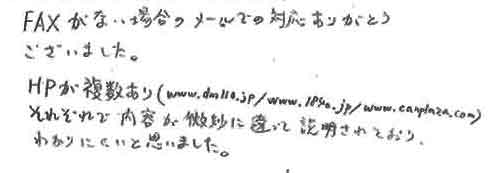 FAXがない場合のメールでの対応ありがとう
ございました。
HPが複数あり(www.dm110.jp/www.1890.jp/www.canplaza.com)
それぞれで内容が微妙に違って説明されており、
わかりにくいと思いました。